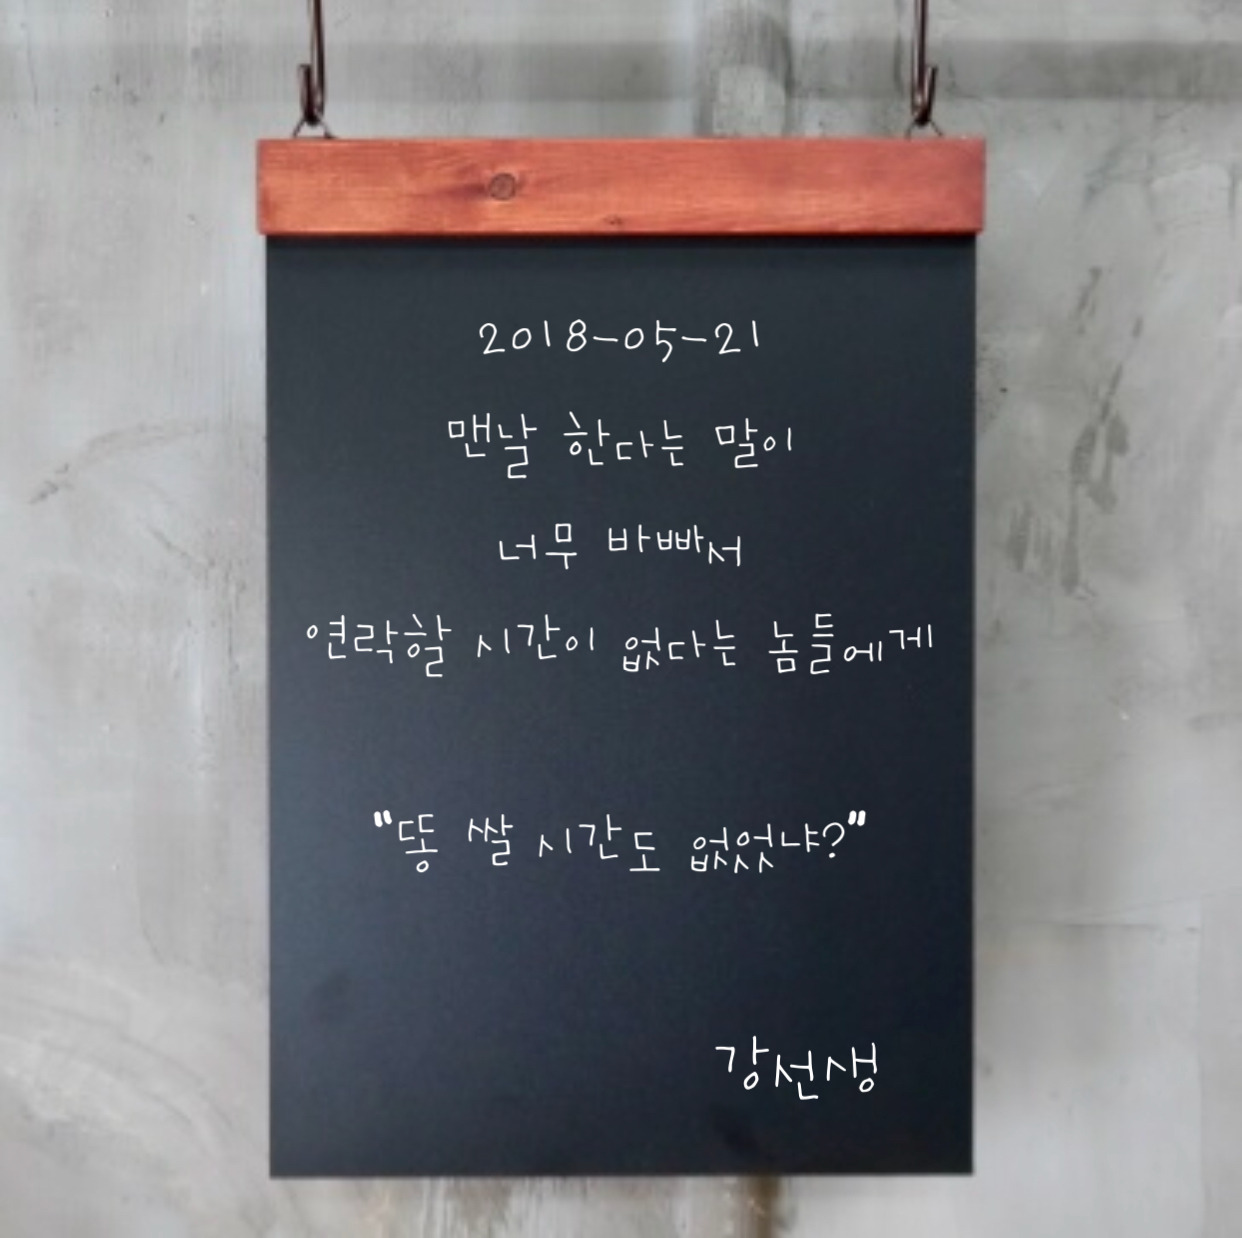 2018-05-21
맨날 한다는 말이
너무 바빠서
연락할 시간이 없다는 놈들에게
"똥 쌀 시간도 없었냐?"
강선생